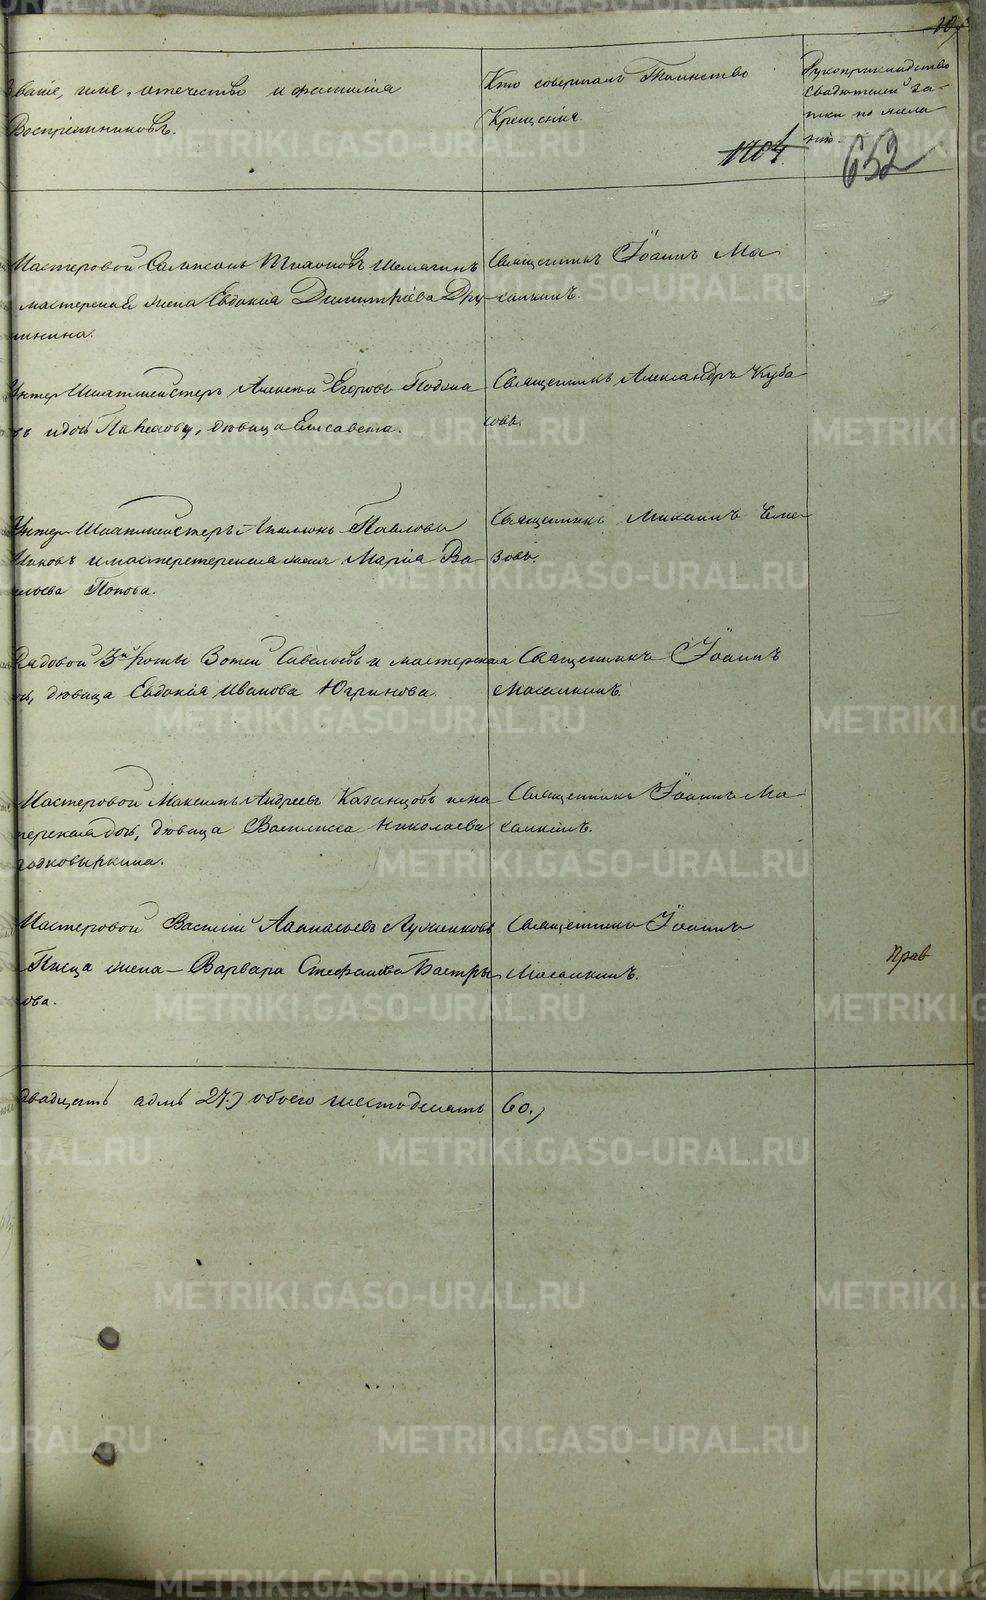 Званіе, имя, отечество и фамилія
Воспріемниковъ.
Кто совершалъ Таинство
Крещенія.
Рукоприкладство
свидѣтелей за-
писи по жела
нію.
1104
652
Мастеровой Сампсонъ Тихоновъ Шемягинъ
мастерская жена Евдокія Димитріева Дру
жинина.
Священникъ Іоаннъ Ма
салкинъ.
Унтер Шихтмейстеръ Алексѣй Егоровъ
дочь дѣвица Елисавета.
Священникъ Александръ Куба
совъ.
Унтер Шихтмейстеръ Павловъ
жена Марія Ва
сильева Попова.
Священникъ Михаилъ
зовъ.
Рядовой 3й роты Савельевъ и мастерская
дочь, дѣвица Евдокія Иванова Югринова.
Священникъ Іоаннъ
Масалкинъ.
Мастеровой Максимъ Андреевъ Казанцовъ
дочь, дѣвица Василисса Николаева
Подковыркина.
Священникъ Іоаннъ Ма
салкинъ.
Мастеровой Василій Аѳанасьевъ
Писца жена - Варвара Стефанова Бастры
кова.
Священникъ Іоаннъ
Масалкинъ.
Прав
двадцать 27.) обоего шестьдесятъ 60.)
METRIKI.GASO-URAL.RU